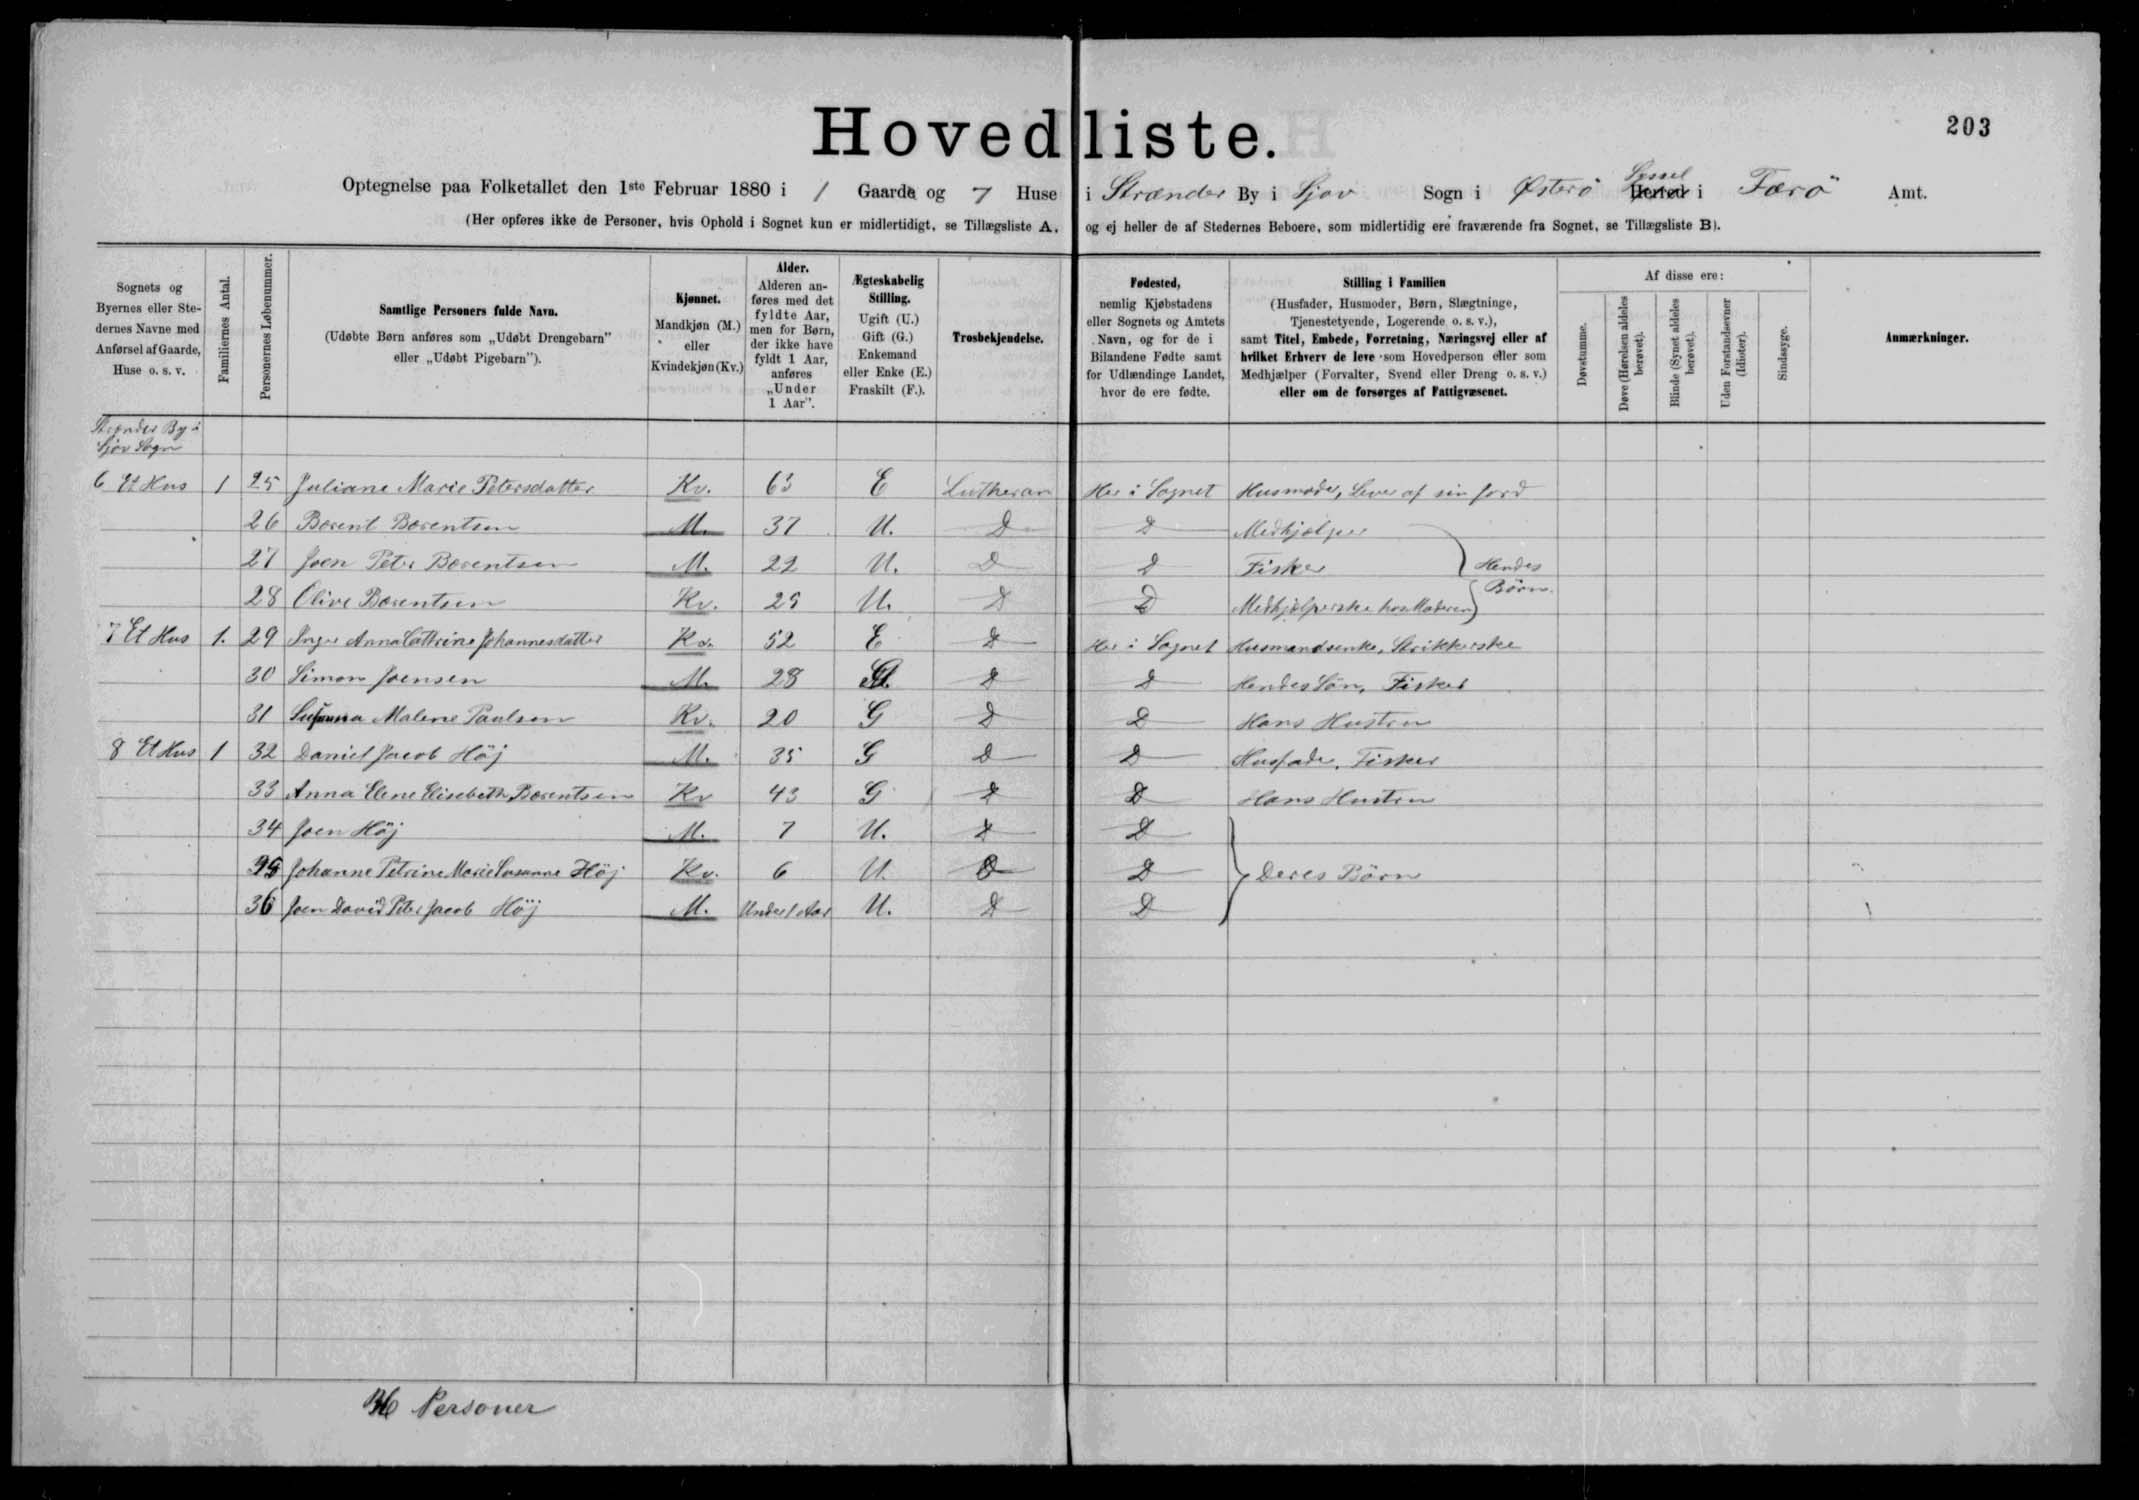 Hovedliste.
203
Optegnelse paa Folketallet den 1ste Februar 1880 i 1 Gaarde og 7 Huse i Strænder By i Sjov Sogn i Østerö Syssel Herred i Færö Amt.
(Her opføres ikke de Personer, hvis Ophold i Sognet kun er midlertidigt, se Tillægsliste A, og ej heller de af Stedernes Beboere, som midlertidig ere fraværende fra Sognet, se Tillægsliste B).
Sognets og Byernes eller Stedernes Navne med Anførsel af Gaarde, Huse o. s. v.
Familiernes Antal.
Personernes Løbenummer.
Samtlige Personers fulde Navn.
(Udøbte Børn anføres som „Udøbt Drengebarn" eller „Udøbt Pigebarn").
Kjønnet.
Mandkjøn (M.) eller Kvindekjøn (Kv.)
Alder.
Alderen anføres med det fyldte Aar, men for Børn, der ikke have fyldt 1 Aar, anføres „Under 1 Aar".
Ægteskabelig Stilling.
Ugift (U.) Gift (G.) Enkemand eller Enke (E.) Fraskilt (F.).
Trosbekjendelse.
Fødested,
nemlig Kjøbstadens eller Sognets og Amtets Navn, og for de i Bilandene Fødte samt for Udlændinge Landet, hvor de ere fødte.
Stilling i Familien
(Husfader, Husmoder, Børn, Slægtninge, Tjenestetyende, Logerende o. s. v.),
samt Titel, Embede, Forretning, Næringsvej eller af hvilket Erhverv de leve som Hovedperson eller som Medhjælper (Forvalter, Svend eller Dreng o. s. v.) eller om de forsørges af Fattigvæsenet.
Af disse ere:
Døvstumme.
Døve (Hørelsen aldeles berøvet).
Blinde (Synet aldeles berøvet).
Uden Forstandsevner (Idioter).
Sindssyge.
Anmærkninger.
Strænder By i
Sjov Sogn
6 Et Hus 1 25 Juliane Marie Petersdatter Kv. 63 E Lutheran Her i Sognet Husmoder, Lever af sin Jord
26 Barent Barentsen M. 37 U. D D Medhjælper
27 Joen Peter Barentsen M. 22 U. D D Fisker
Hendes Börn.
28 Olive Barentsen Kv. 25 U. D D Medhjælperske hos Moderen
7 Et Hus 1. 29 Inger Anna Cathrine Johannesdatter Kv. 52 E D Her i Sognet Husmandsenke, Strikkerske
30 Simon Joensen M. 28 G. D D Hendes Sön, Fisker
31 Susanna Malene Paulsen Kv. 20 G D D Hans Hustru
8 Et Hus 1 32 Daniel Jacob Höj M. 35 G D D Husfader, Fisker
33 Anna Elene Elisebeth Barentsen Kv 43 G D D Hans Hustru
34 Joen Höj M. 7 U. D D
35 Johanne Petrine Marie Susanne Höj Kv. 6 U. D D Deres Börn
36 Joen David Peter Jacob Höj M. Under 1 Aar U. D D
36 Personer